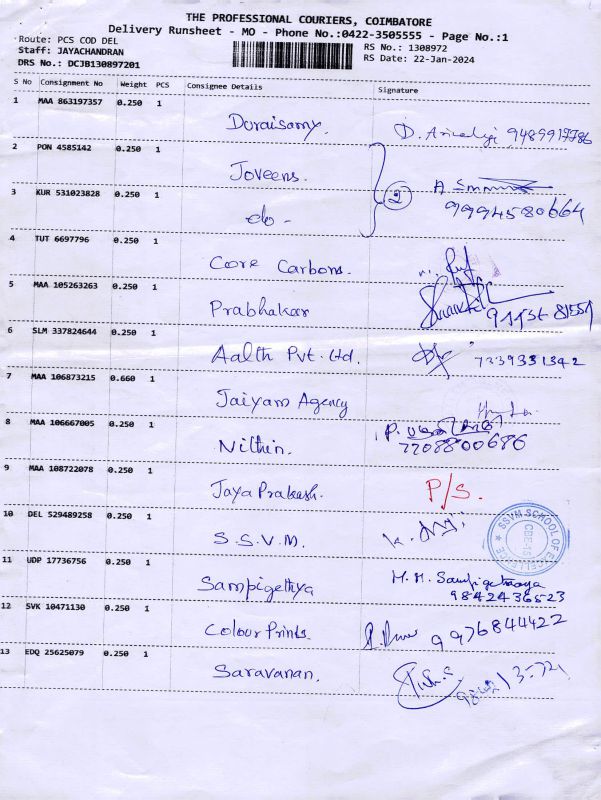 THE PROFESSIONAL COURIERS, COIMBATORE
Delivery Runsheet - MO - Phone No.:0422-3505555 - Page No.:1
Route: PCS COD DEL
Staff: JAYACHANDRAN
DRS No.: DCJB130897201
RS No.: 1308972
RS Date: 22-Jan-2024
S No Consignment No Weight PCS Consignee Details Signature
1 MAA 863197357 0.250 1
Doraisamy. D.
2 PON 4585142 0.250 1
Joveens.
3 KUR 531023828 0.250 1
do - 2 9994580664
4 TUT 6697796 0.250 1
Core Carbons.
5 MAA 105263263 0.250 1
Prabhakar
6 SLM 337824644 0.250 1
Aalth Pvt. Ltd. 7339331342
7 MAA 106873215 0.660 1
Jaiyam Agency
8 MAA 106667005 0.250 1
Nithin. P. 2208800686
9 MAA 108722078 0.250 1
JayaPrakash. P/S.
10 DEL 529489258 0.250 1
S.S.V.M. K.
SSVM SCHOOL OF EXCELLENCE
CBE-15
11 UDP 17736756 0.250 1
Sampigethya M.M. Sampigethaya
9842436523
12 SVK 10471130 0.250 1
Colour Prints. 9976844422
13 EDQ 25625079 0.250 1
Saravanan.